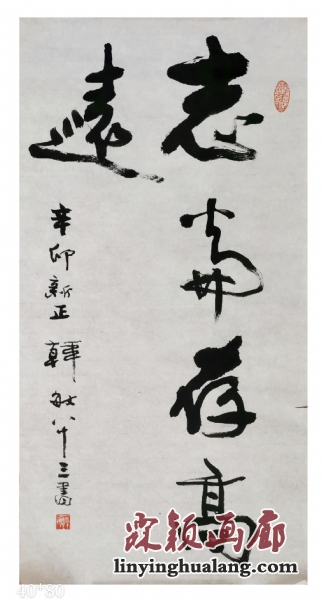 志當存高
遠
辛卯新正 韓敏八十三書
霖颖画廊
linyinghualang.com
40*80